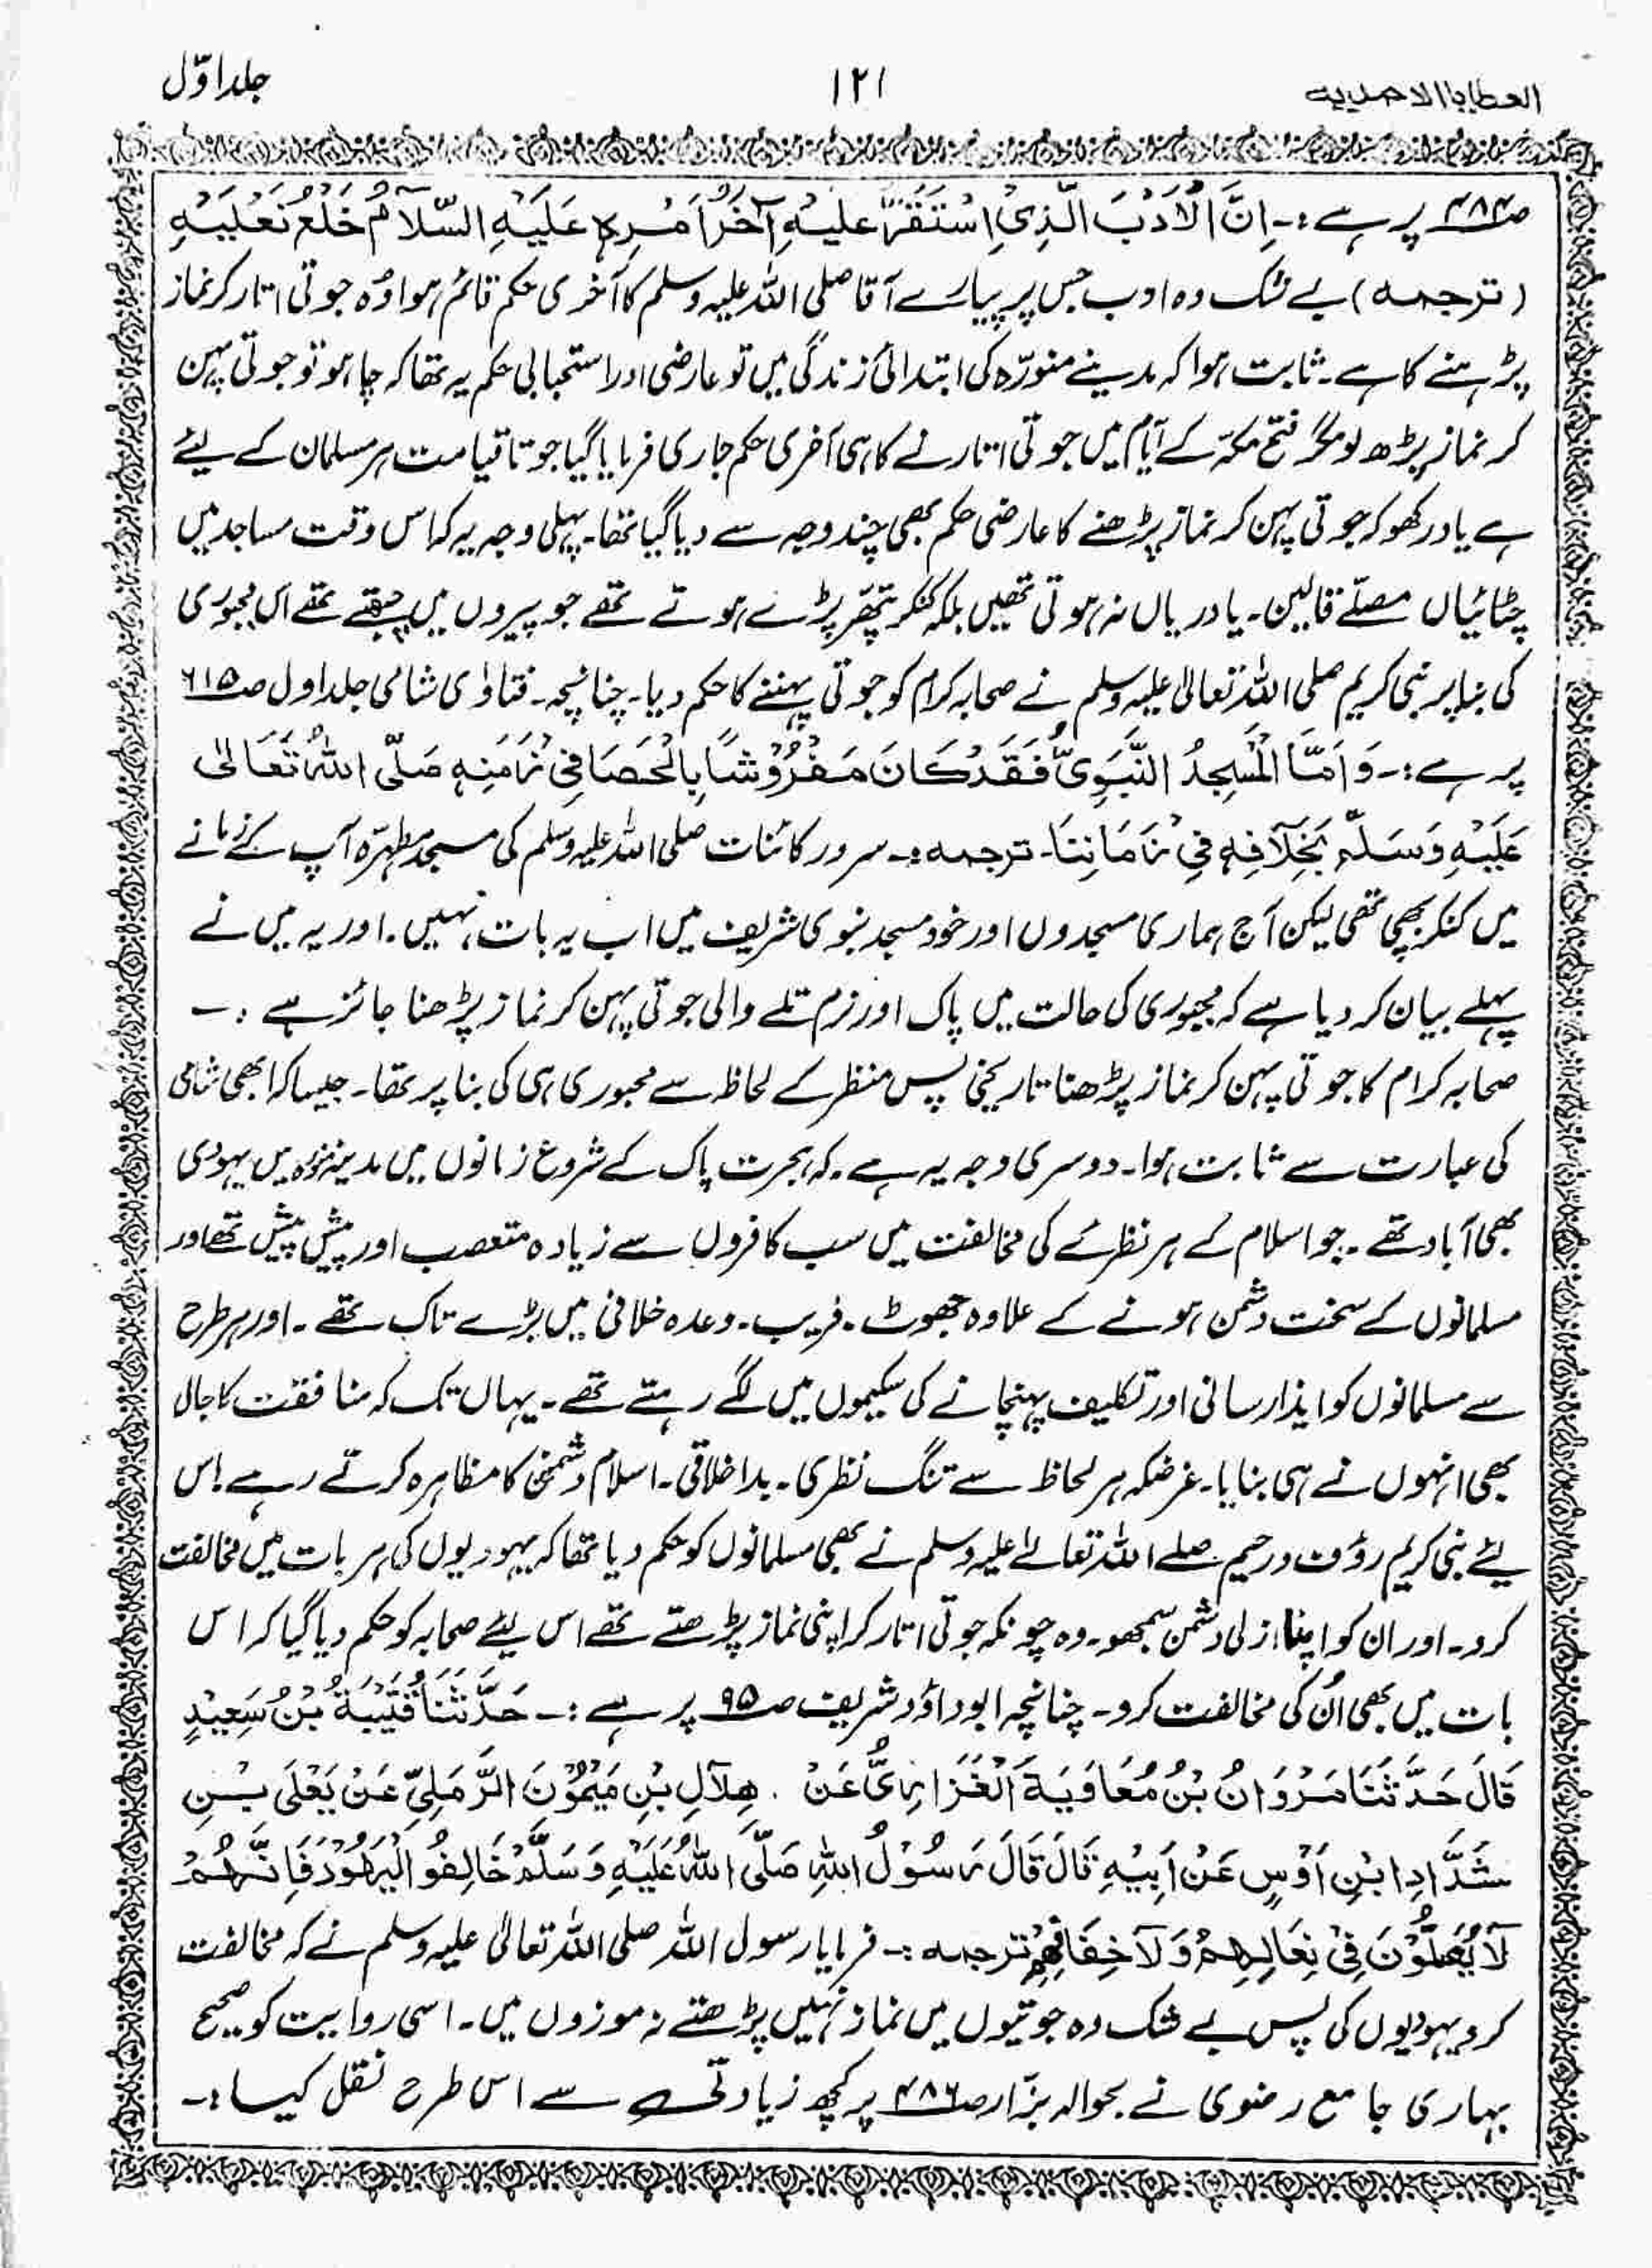 العطايا الاحمديه
۱۲۱
جلد اوّل
صـ۴۸۴ پر ہے :۔ اِنَّ الْاَدَبَ الَّذِیْ اِسْتَقَرَّ عَلَیْہِ آخَرُ اَمْرِہٖ عَلَیْہِ السَّلَامُ خَلْعُ نَعْلَیْہِ
(ترجمہ) بے شک وہ ادب جس پر پیارے آقا صلی اللہ علیہ وسلم کا آخری حکم قائم ہوا وُہ جوتی اتار کر نماز
پڑہنے کا ہے۔ ثابت ہوا کہ مدینے منورّہ کی ابتدائی زندگی میں تو عارضی اور استحبابی حکم یہ تھا کہ چاہو تو جوتی پہن
کر نماز پڑھ لو مگر فتح مکہّ کے ایّام میں جوتی اتارنے کا ہی آخری حکم جاری فرمایا گیا جو تا قیامت ہر مسلمان کے لیئے
ہے یاد رکھو کہ جوتی پہن کر نماز پڑھنے کا عارضی حکم بھی چند وجہ سے دیا گیا تھا۔ پہلی وجہ یہ کہ اس وقت مساجد میں
چٹائیاں مصلّے قالین۔ یا دریاں نہ ہوتی تھیں بلکہ کنکر پتھّر پڑے ہوتے تھے جو پیروں میں چبھتے تھے اس مجبوری
کی بنا پر نبی کریم صلی اللہ تعالیٰ علیہ وسلم نے صحابہ کرام کو جوتی پہننے کا حکم دیا۔ چنانچہ۔ فتاوٰی شامی جلد اول صـ۶۱۵
پر ہے :۔ وَاَمَّا الْمَسْجِدُ النَّبَوِیُّ فَقَدْ کَانَ مَفْرُوْشًا بِالْحَصَا فِیْ زَمَنِہٖ صَلَّی اللہُ تَعَالٰی
عَلَیْہِ وَسَلَّمْ بَخِلَافِہٖ فِیْ زَمَانِنَا۔ ترجمہ :۔ سرور کائنات صلی اللہ علیہ وسلم کی مسجد مطہّرہ آپ کے زمانے
میں کنکر بچھی تھی لیکن آج ہماری مسجدوں اور خود مسجد نبوی شریف میں اب یہ بات نہیں۔ اور یہ میں نے
پہلے بیان کر دیا ہے کہ مجبوری کی حالت میں پاک اور نرم تلے والی جوتی پہن کر نماز پڑھنا جائز ہے :۔
صحابہ کرام کا جوتی پہن کر نماز پڑھنا تاریخی پس منظر کے لحاظ سے مجبوری ہی کی بنا پر تھا۔ جیسا کہ ابھی شامی
کی عبارت سے ثابت ہوا۔ دوسری وجہ یہ ہے۔ کہ ہجرت پاک کے شروع زمانوں میں مدینہ منورہ میں یہودی
بھی آباد تھے۔ جو اسلام کے ہر نظرئے کی مخالفت میں سب کافروں سے زیادہ متعصب اور پیش پیش تھے اور
مسلمانوں کے سخت دشمن ہونے کے علاوہ جھوٹ۔ فریب۔ وعدہ خلافی میں بڑے تاک تھے۔ اور ہر طرح
سے مسلمانوں کو ایذا رسانی اور تکلیف پہنچانے کی سکیموں میں لگے رہتے تھے۔ یہاں تک کہ منافقت کا جال
بھی انہوں نے ہی بنایا۔ غرضکہ ہر لحاظ سے تنگ نظری۔ بد اخلاقی۔ اسلام دشمنی کا مظاہرہ کرتے رہے اس
لیئے نبی کریم رؤف ورحیم صلے اللہ تعالےٰ علیہ وسلم نے بھی مسلمانوں کو حکم دیا تھا کہ یہودیوں کی ہر بات میں مخالفت
کرو۔ اور ان کو اپنا ازلی دشمن سمجھو۔ وہ چونکہ جوتی اتار کر اپنی نماز پڑھتے تھے اس لیئے صحابہ کو حکم دیا گیا کہ اس
بات میں بھی اُن کی مخالفت کرو۔ چنانچہ ابو داؤد شریف صـ۹۵ پر ہے :۔ حَدَّثَنَا قُتَیْبَۃُ بْنُ سَعِیْدٍ
قَالَ حَدَّثَنَا مَرْوَانُ بْنُ مُعَاوِیَۃَ الْفَزَارِیُّ عَنْ ھِلَالِ بْنِ مَیْمُوْنَ الرَّمَلِیِّ عَنْ یَعْلَی بْنِ
شَدَّادِ ابْنِ اَوْسٍ عَنْ اَبِیْہِ قَالَ قَالَ رَسُوْلُ اللہِ صَلَّی اللہُ عَلَیْہِ وَسَلَّمْ خَالِفُوا الْیَہُوْدَ فَاِنَّہُمْ
لَا یُصَلُّوْنَ فِیْ نِعَالِہِمْ وَلَا خِفَافِہِمْ ترجمہ :۔ فرمایا رسول اللہ صلی اللہ تعالیٰ علیہ وسلم نے کہ مخالفت
کرو یہودیوں کی پس بے شک وہ جوتیوں میں نماز نہیں پڑھتے نہ موزوں میں۔ اسی روایت کو صحیح
بہاری جامع رضوی نے بحوالہ بزّار صـ۴۸۶ پر کچھ زیادتی سے اس طرح نقل کیا :۔